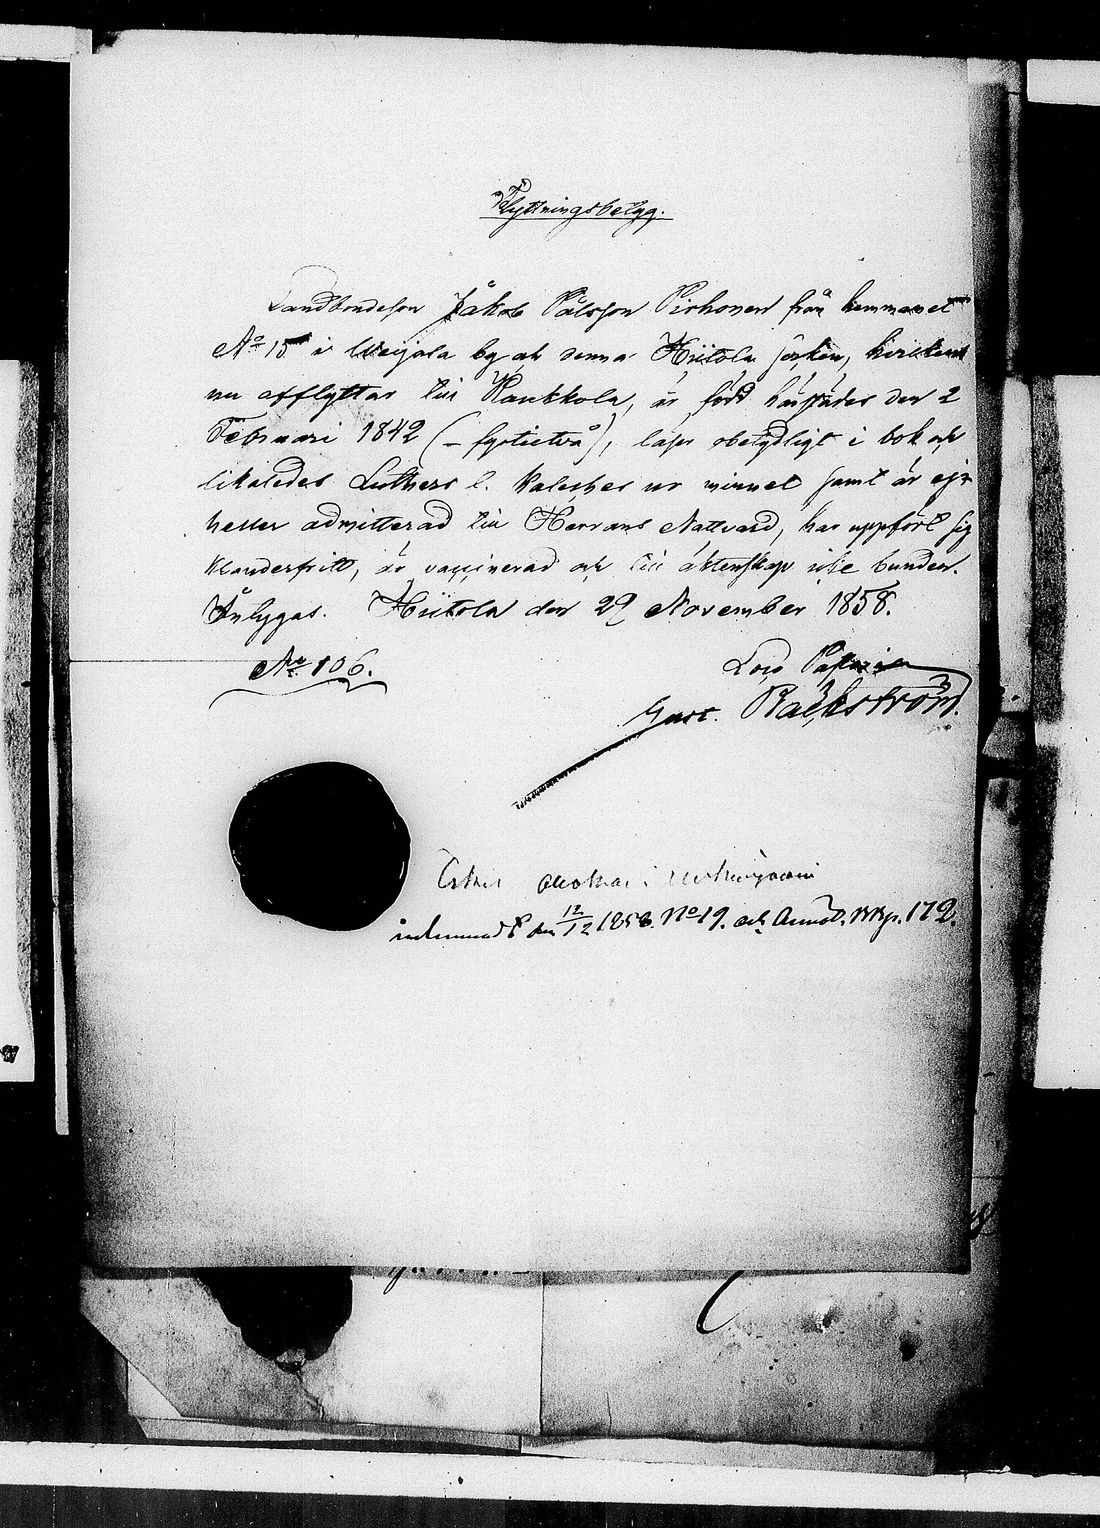 Flyttningsbetyg.
Landbondeson Jakob Pålsson Pirhonen från hemmanet
No 15 i Weijala by och denna Hiitola socken, hvilken
nu afflyttar till Kaukkola, är född härstädes den 2
Februari 1842 (– fyrtiotvå), läser obetydligt i bok och
likaledes Luthers l. kateches ur minnet samt är ej
heller admitterad till Herrans Nattvard, har uppfört sig
klanderfritt, är vaccinerad och till äktenskap icke bunden.
Intygas. Hiitola den 29 November 1858.
No 106.
Gust. Backström.
inlemnadt den 12/12 1858. No 19. och Annot. p. 172.